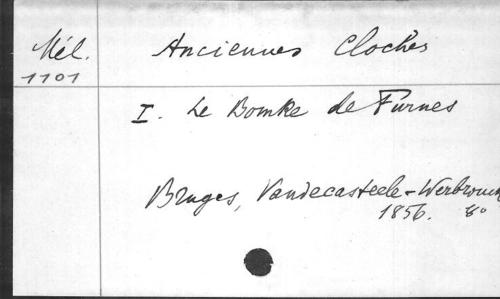 Mél. Anciennes Cloches
1101
I. Le Bomke de Furnes
Bruges, Vandecasteele-Werbrouck
1856. 8°